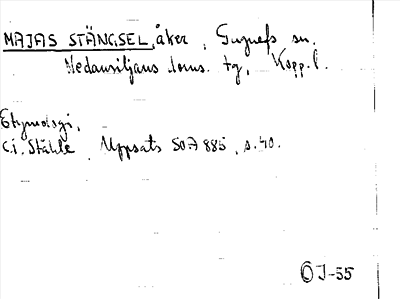 MAJAS STÄNGSEL, åker, Gagnefs sn.
Nedansiljans doms. tg, Kopp. l.
Etymologi,
C.I. Ståhle, Uppsats SOA 885, s. 40.
ÖJ-55